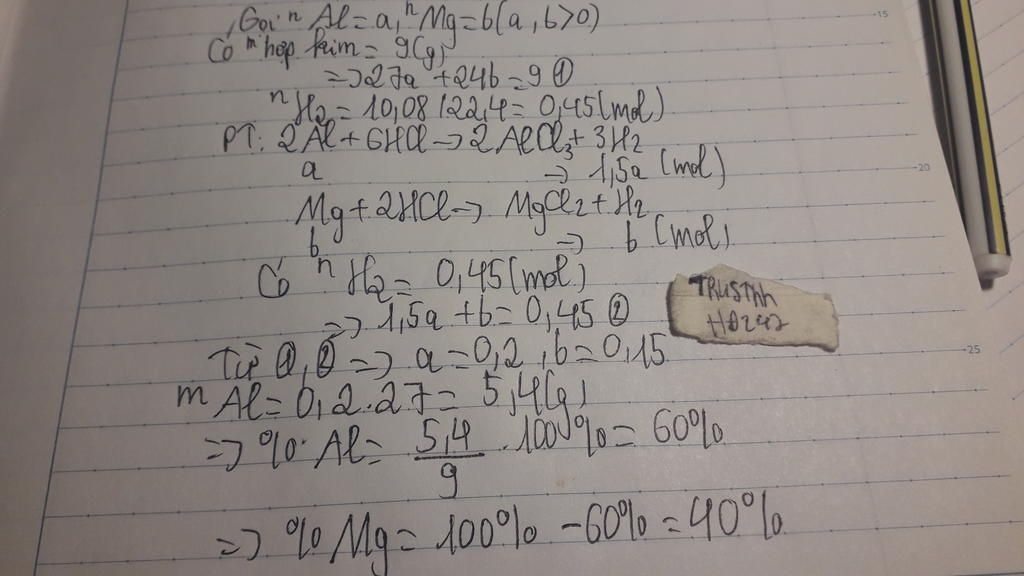 Gọi n Al = a, n Mg = b (a, b > 0)
Có m hợp kim = 9(g)
=> 27a + 24b = 9 ①
n H2 = 10,08 / 22,4 = 0,45 (mol)
PT: 2Al + 6HCl → 2AlCl3 + 3H2
a → 1,5a (mol)
Mg + 2HCl → MgCl2 + H2
b → b (mol)
Có n H2 = 0,45 (mol)
=> 1,5a + b = 0,45 ②
Từ ①, ② => a = 0,2, b = 0,15
m Al = 0,2.27 = 5,4(g)
=> % Al = 5,4/9 . 100% = 60%
=> % Mg = 100% - 60% = 40%
15
20
25